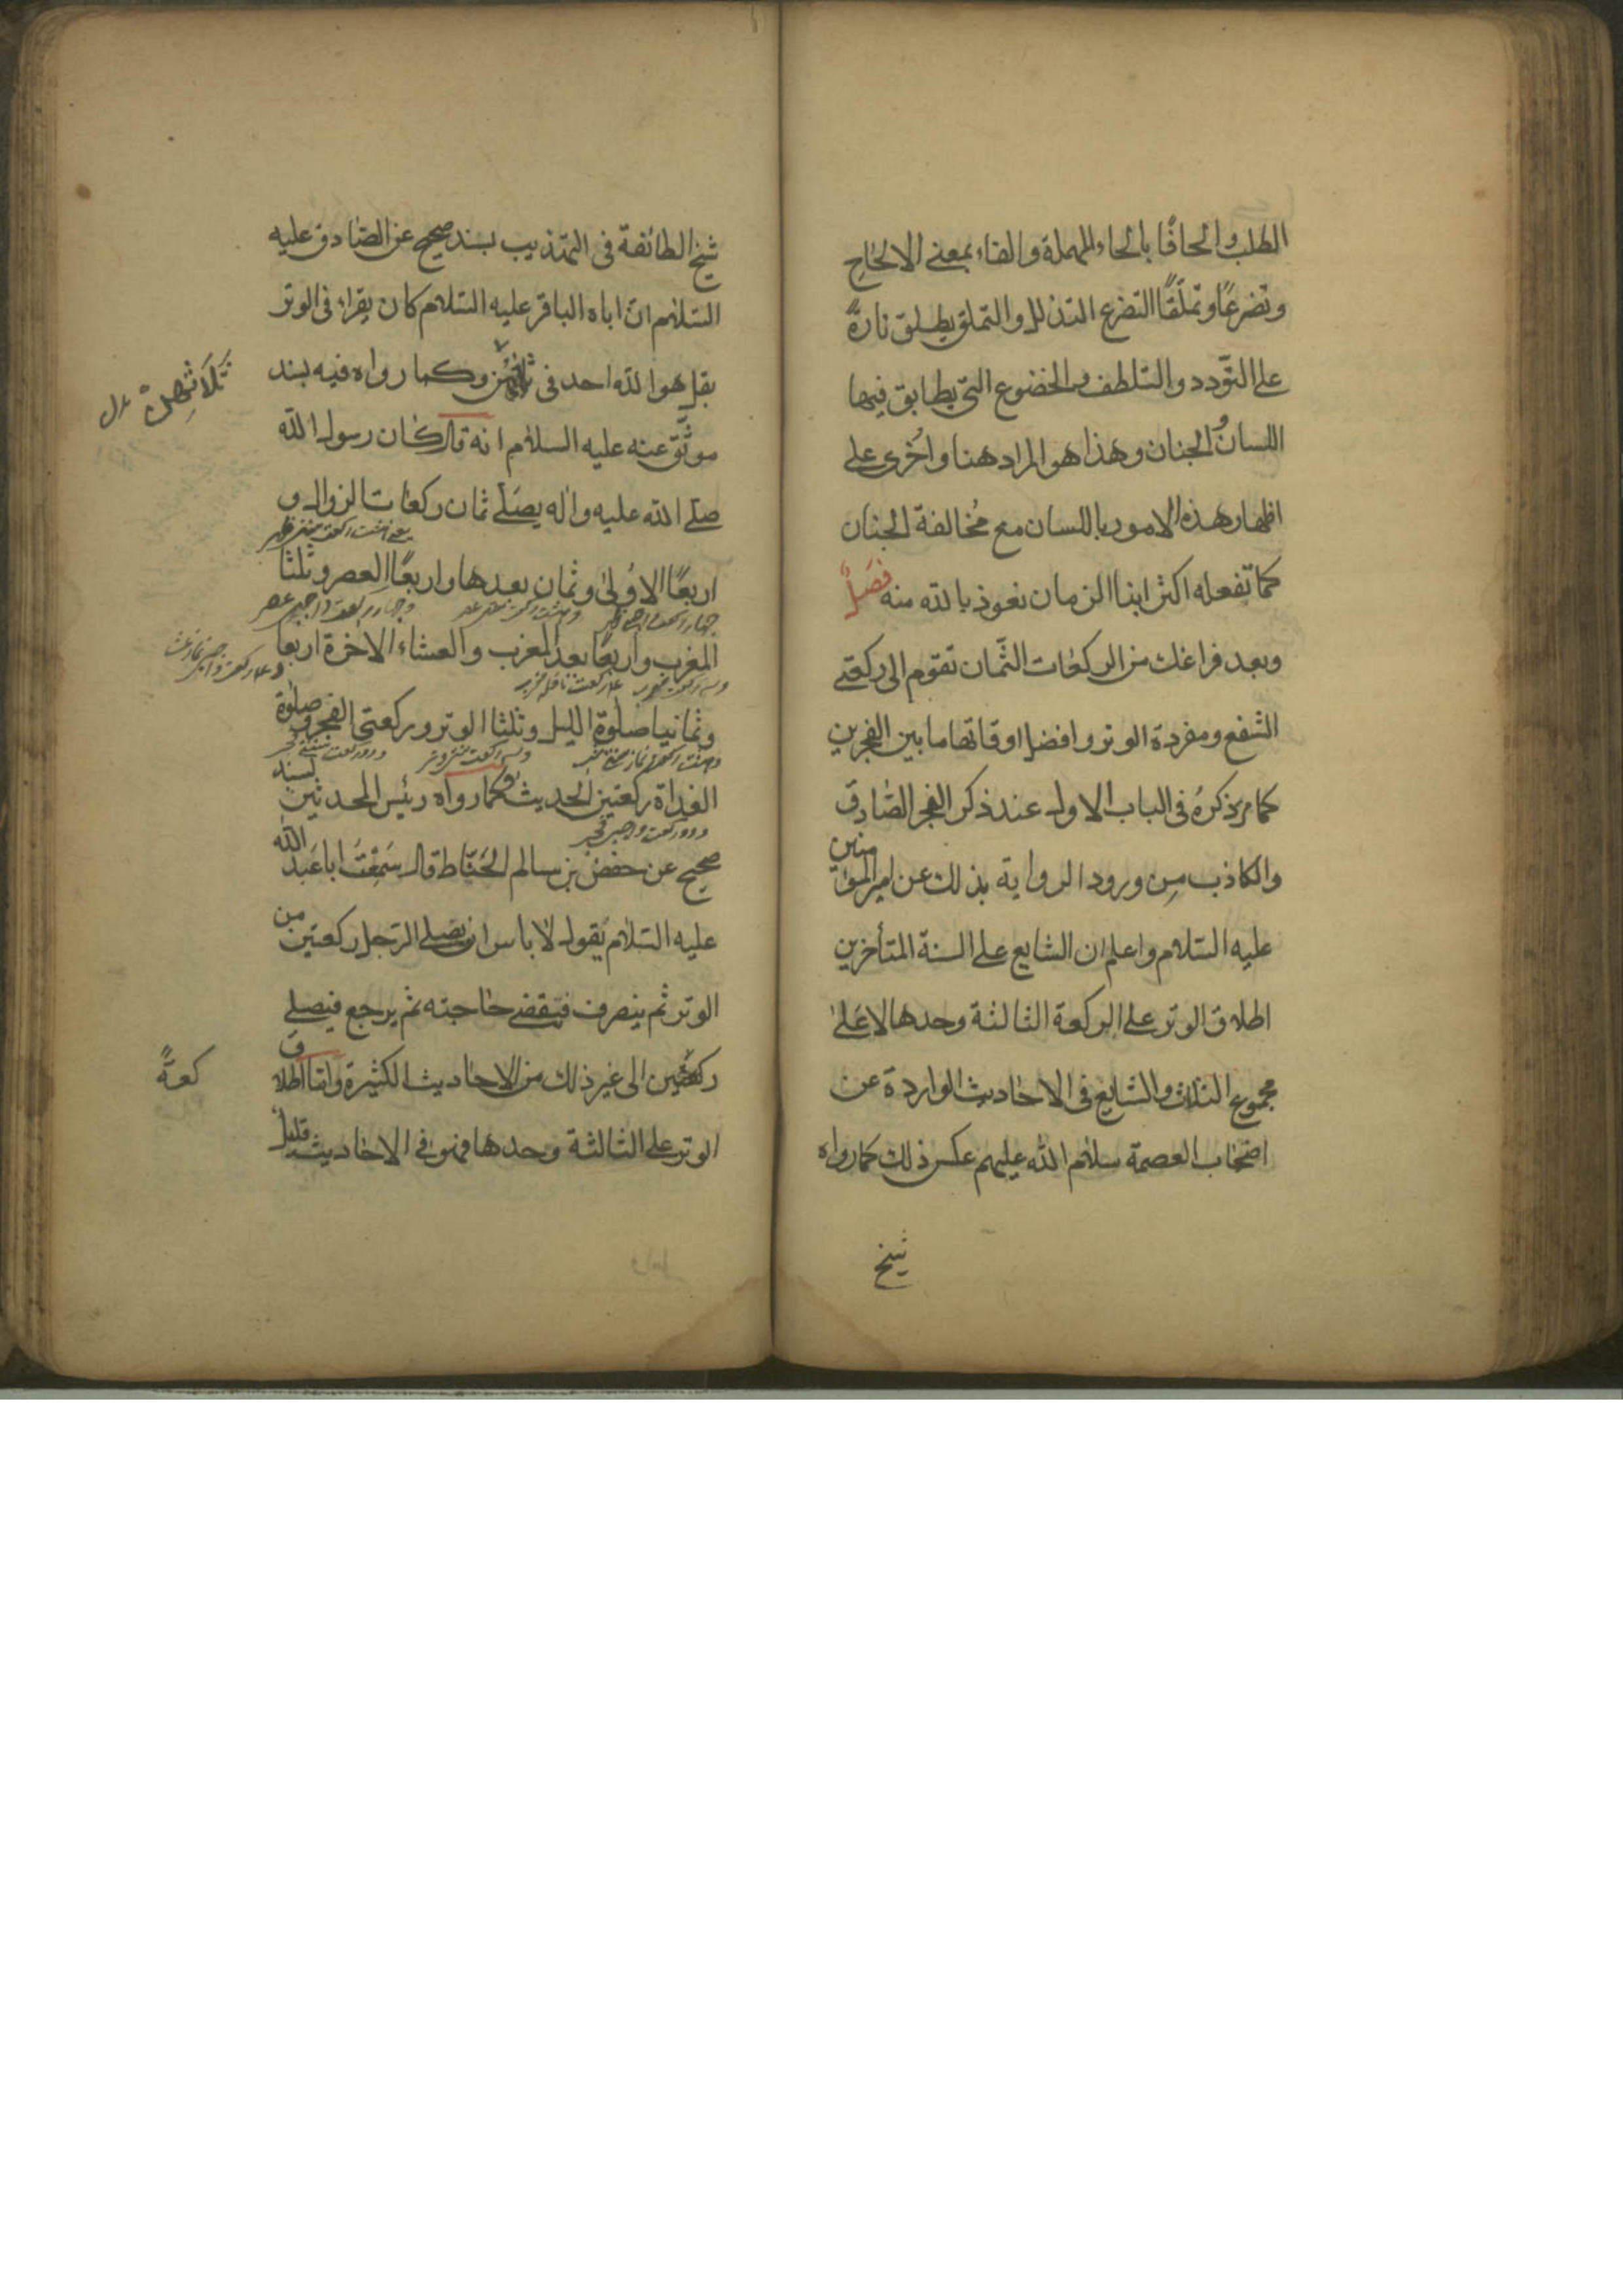 الطلب والحافًا بالحاء المهملة والفاء بمعنى الالحاح
وتضرعًا وتملّقًا التضرع التذلل والتملق يطلق تارةً
على التودد والتلطف والخضوع التي يطابق فيها
اللسانُ الجنان وهذا هو المراد هنا واُخرى على
اظهار هذه الامور باللسان مع مُخالفة الجنان
كما تفعله اكثر ابناء الزمان نعوذ بالله منه فصلٌ
وبعد فراغك من الركعات الثّمان تقوم الى ركعتي
الشفع ومفردة الوتر وافضل اوقاتها ما بين الفجرين
كما مر ذكرهُ في الباب الاول عند ذكر الفجر الصّادق
والكاذب مِن ورود الرواية بذلك عن امير المؤمنين
عليه السّلام واعلم ان الشايع على السنة المتأخرين
اطلاق الوتر على الركعة الثالثة وحدها لا عَلىٰ
مجموع الثلاث والشايع في الاحاديث الواردة عن
اصحاب العصمة سلام الله عليهم عكس ذلك كما رواه
شيخ
شيخ الطائفة في التهذيب بسند صحيح عن الصّادق عليه
السّلام انّ اباه الباقر عليه السّلام كان يقراء في الوتر
بقل هو الله احد في ثلاثهنّ وكما رواه فيه بسند
ثلاثهنّ
موثّق عنه عليه السلام انه قال كان رسول الله
صلّى الله عليه واٰله يصلّي ثمان ركعات الزوال و
اربعًا الاُولىٰ وثمان بعدها واربعًا العصر وثلثا
المغرب واربعًا بعد المغرب والعشاء الاخرة اربعا
وثمانيا صلوة الليل وثلثا الوتر وركعتى الفجر وصلوة
الغداة ركعتين الحديث وكما رواه رئيس المحدثين بسند
ودو ركعت واجبى فجر
صحيح عن حفض بن سالم الحَنّاط قال سَمِعْتُ ابا عَبد الله
عليه السّلام يَقول لا باس ان يصَلي الرّجل ركعتين من
الوتر ثم ينصرف فيقضى حاجته ثم يرجع فيصلي
ركعتين الى غير ذلك من الاحاديث الكثيرة وامّا اطلاق
كعةً
الوتر على الثالثة وحدها فهو في الاحاديث قليل